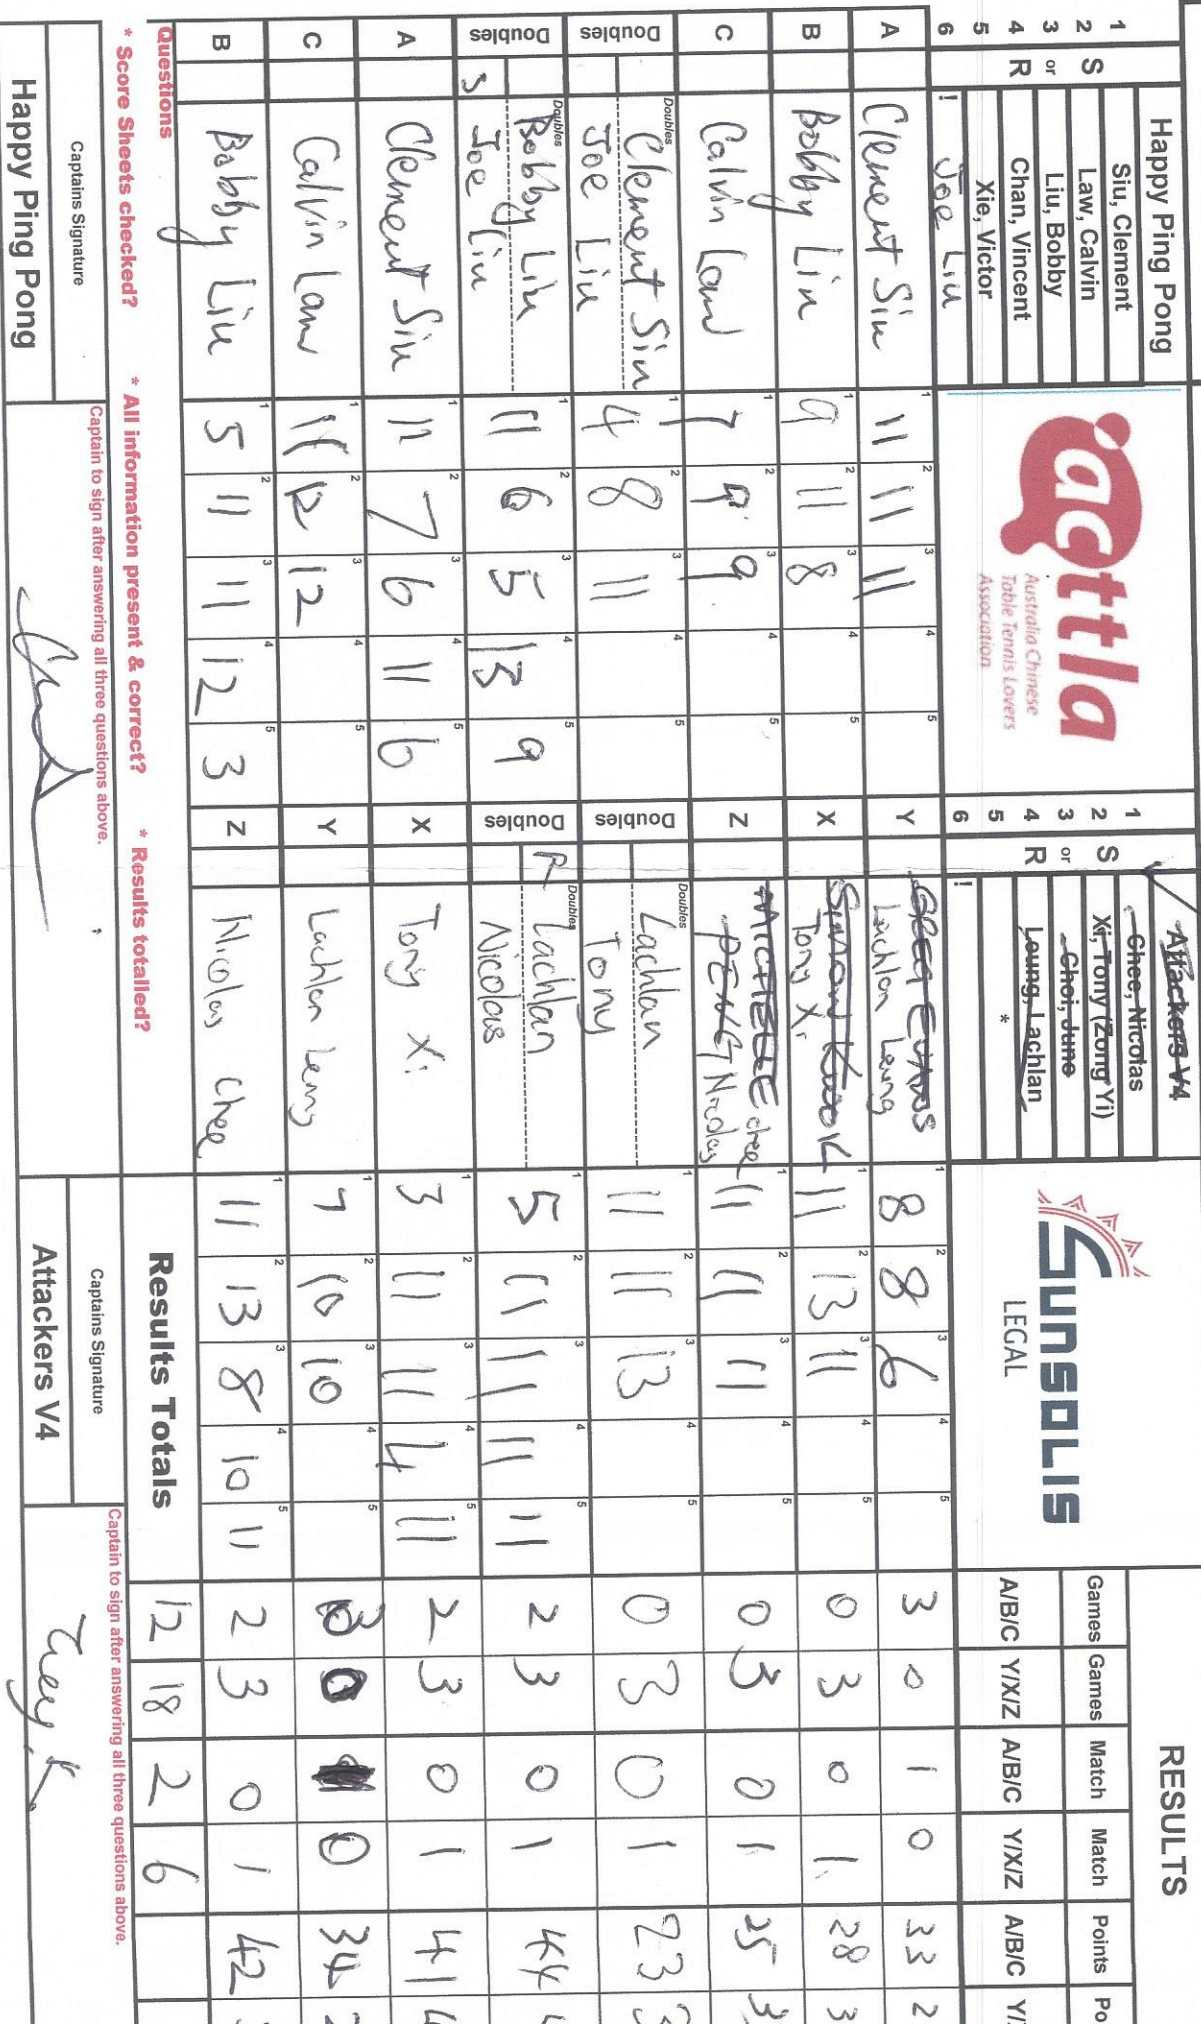 RESULTS
Happy Ping Pong
1 Siu, Clement
2 Law, Calvin
3 Liu, Bobby
4 Chan, Vincent
5 Xie, Victor
6 ! Joe Liu
S or R
acttla
Australia Chinese
Table Tennis Lovers
Association
Attackers V4
1 Chee, Nicolas
2 Xi, Tony (Zong Yi)
3 Choi, June
4 Leung, Lachlan
5 *
6 !
S or R
SUNSOLIS
LEGAL
Games Games Match Match Points Po
A/B/C Y/X/Z A/B/C Y/X/Z A/B/C Y/
A Clement Siu 11 11 11 Y GREG EVANS Lachlan Leung 8 8 6 3 0 1 0 33 2
B Bobby Liu 9 11 8 X SIMON KWOK Tony Xi 11 13 11 0 3 0 1 28 3
C Calvin Law 7 9 9 Z MICHELLE PENG Nicolas chee 11 11 11 0 3 0 1 25 3
Doubles Doubles Clement Siu 4 8 11 Doubles Doubles Lachlan 11 11 13 0 3 0 1 23 3
Joe Liu Tony
Doubles Doubles Bobby Liu 11 6 5 13 9 Doubles R Doubles Lachlan 5 11 11 11 11 2 3 0 1 44
S Joe Liu Nicolas
A Clement Siu 11 7 6 11 6 X Tony Xi 3 11 11 4 11 2 3 0 1 41 4
C Calvin Law 11 12 12 Y Lachlan Leung 7 10 10 3 0 0 34 2
B Bobby Liu 5 11 11 12 3 Z Nicolas Chee 11 13 8 10 11 2 3 0 1 42
Questions
Results Totals 12 18 2 6
* Score Sheets checked? * All information present & correct? * Results totalled?
Captains Signature
Captain to sign after answering all three questions above.
Captains Signature
Captain to sign after answering all three questions above.
Happy Ping Pong
Attackers V4